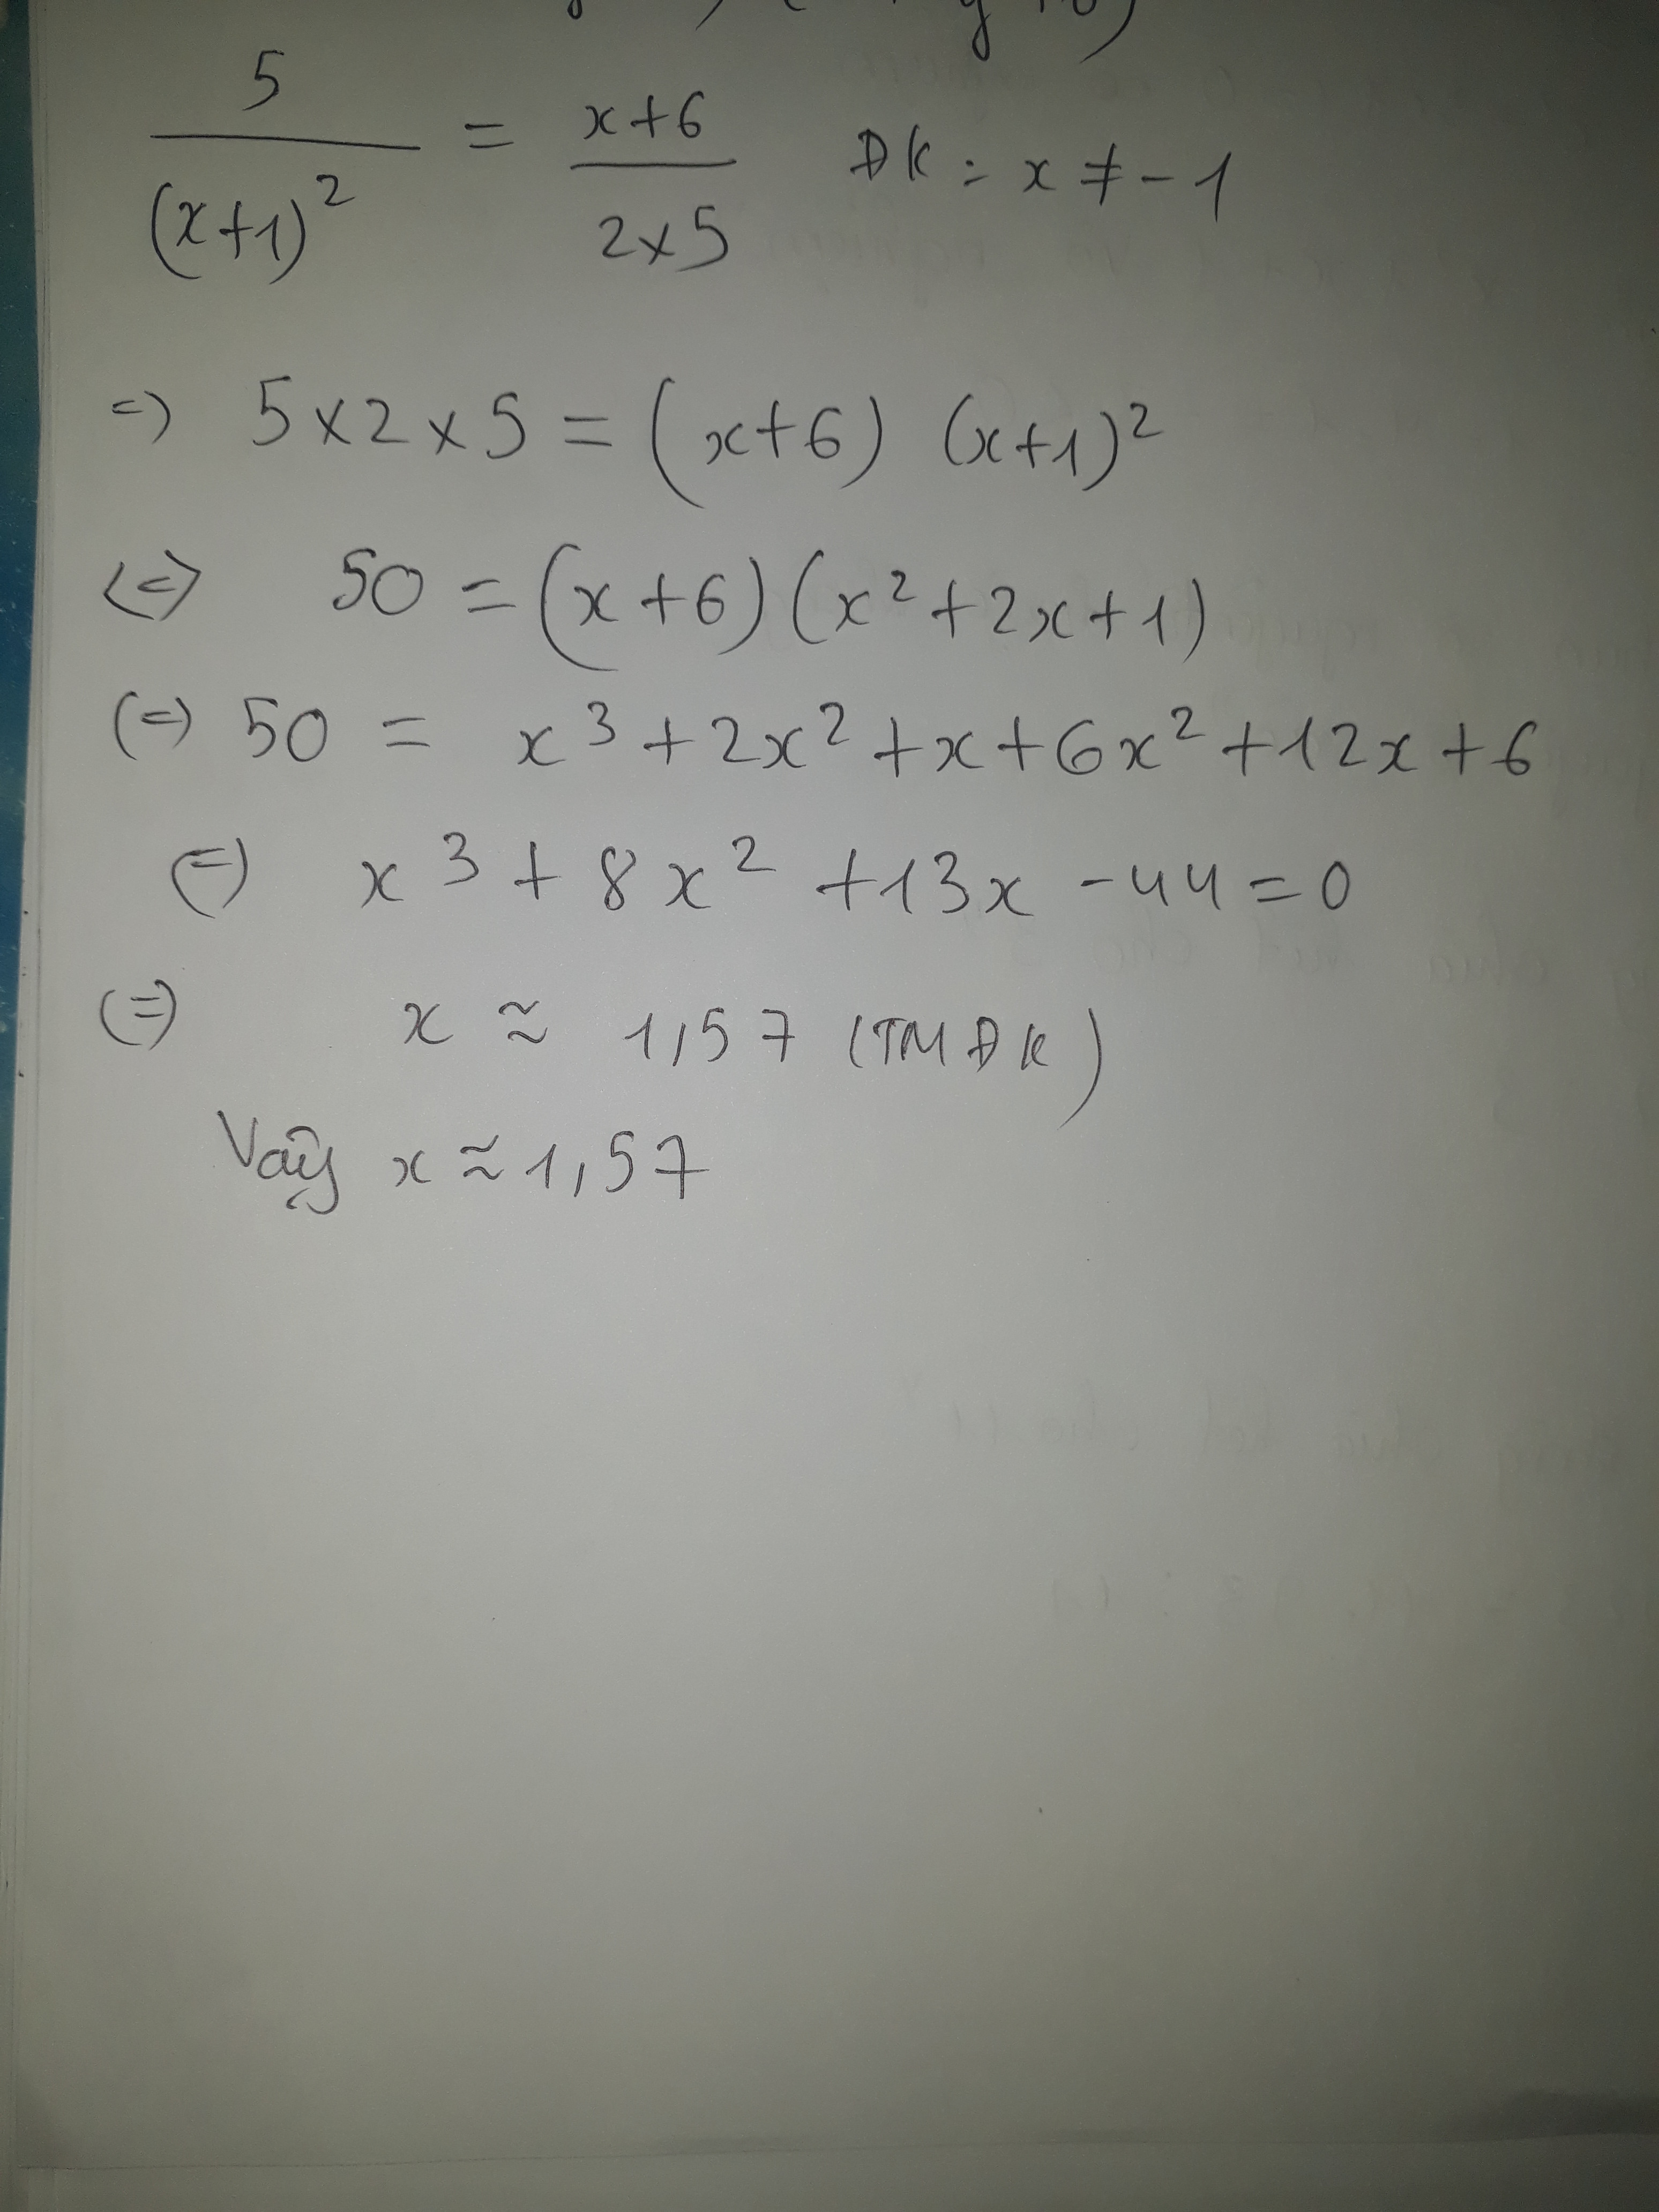 5/(x+1)² = x+6/2x5 ĐK: x ≠ -1
=> 5x2x5 = (x+6) (x+1)²
<=> 50 = (x+6)(x²+2x+1)
(=) 50 = x³+2x²+x+6x²+12x+6
(=) x³+8x²+13x-44=0
(=) x ≈ 1,57 (TMĐK)
Vậy x ≈ 1,57